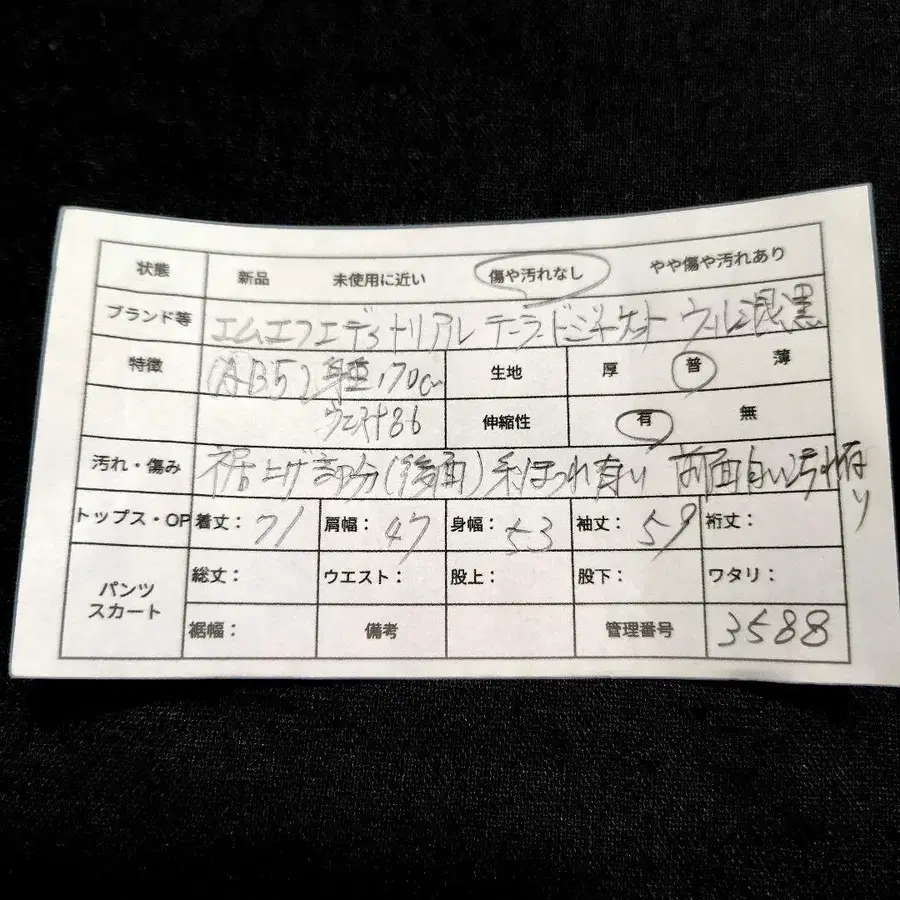 状態 新品 未使用に近い 傷や汚れなし やや傷や汚れあり
ブランド等 エムエフエディトリアル テーラードジャケット ウール混 黒
特徴 (AB5) 身重170cm 生地 厚 普 薄
ウエスト86 伸縮性 有 無
汚れ・傷み 裾上げ部分(後面)糸ほつれ有り 前面白い汚れ有り
トップス・OP 着丈：71 肩幅：47 身幅：53 袖丈：59 裄丈：
パンツ スカート 総丈： ウエスト： 股上： 股下： ワタリ：
裾幅： 備考 管理番号 3588